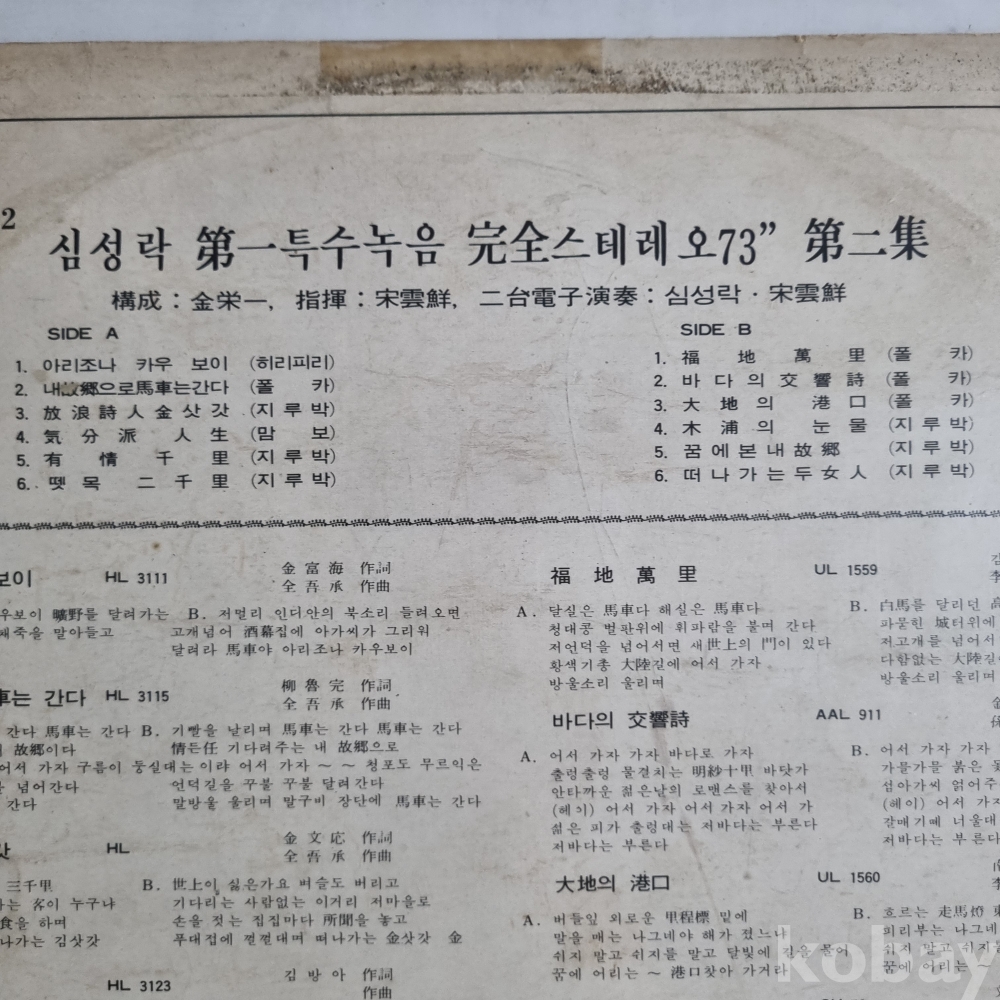 2
심성락 第一특수녹음 完全스테레오73” 第二集
構成 : 金栄一, 指揮 : 宋雲鮮, 二台電子演奏 : 심성락 · 宋雲鮮
SIDE A
1. 아리조나 카우 보이 (히리피리)
2. 내故郷으로馬車는간다 (폴 카)
3. 放浪詩人金삿갓 (지루박)
4. 気分派 人生 (맘 보)
5. 有情千里 (지루박)
6. 뗏목 二千里 (지루박)
SIDE B
1. 福地萬里 (폴 카)
2. 바다의交響詩 (폴 카)
3. 大地의 港口 (폴 카)
4. 木浦의 눈물 (지루박)
5. 꿈에본내故郷 (지루박)
6. 떠나가는두女人 (지루박)
보이 HL 3111
金富海 作詞
全吾承 作曲
우보이 曠野를 달려가는
패죽을 말아들고
B. 저멀리 인디안의 북소리 들려오면
고개넘어 酒幕집에 아가씨가 그리워
달려라 馬車야 아리조나 카우보이
車는 간다 HL 3115
柳魯完 作詞
全吾承 作曲
간다 馬車는 간다
故郷이다
어서 가자 구름이 둥실대는
넘어간다
간다
B. 기빨을 날리며 馬車는 간다 馬車는 간다
情든任 기다려주는 내 故郷으로
이랴 어서 가자 ~ ~ 청포도 무르익은
언덕길을 꾸불 꾸불 달려간다
말방울 울리며 말구비 장단에 馬車는 간다
갓 HL
金文応 作詞
全吾承 作曲
三千里
는 客이 누구냐
食을 하며
나가는 김삿갓
B. 世上이 싫은가요 벼슬도 버리고
기다리는 사람없는 이거리 저마을로
손을 젓는 집집마다 所聞을 놓고
푸대접에 껄껄대며 떠나가는 金삿갓 金
HL 3123
김방아 作詞
作曲
福地萬里 UL 1559
A. 달실은 馬車다 해실은 馬車다
청대콩 벌판위에 휘파람을 불며 간다
저언덕을 넘어서면 새世上의 門이 있다
황색기총 大陸길에 어서 가자
방울소리 울리며
B. 白馬를 달리던
파묻힌 城터위에
저고개를 넘어서
다함없는 大陸길
방울소리 울리며
바다의 交響詩 AAL 911
A. 어서 가자 가자 바다로 가자
출렁출렁 물결치는 明紗十里 바닷가
안타까운 젊은날의 로맨스를 찾아서
(헤이) 어서 가자 어서 가자 어서 가
젊은 피가 출렁대는 저바다는 부른다
저바다는 부른다
B. 어서 가자 가자
가물가물 붉은
섬아가씨 얽어주
(헤이) 어서 가자
갈매기떼 너울대
저바다는 부른다
大地의 港口 UL 1560
A. 버들잎 외로운 甲程標 밑에
말을 매는 나그네야 해가 졌느냐
쉬지 말고 쉬지를 말고 달빛에 길을 물어
꿈에 어리는 ~ 港口찾아 가거라
B. 흐르는 走馬燈
피리부는 나그네
쉬지 말고 쉬지
꿈에 어리는 ~
kobay